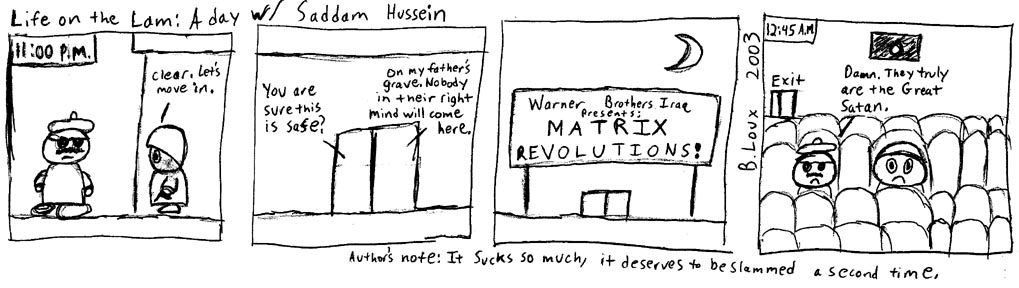 Life on the Lam: A day w/ Saddam Hussein
11:00 P.M.
clear. Let's
move in.
You are
sure this
is safe?
On my father's
grave. Nobody
in their right
mind will come
here.
Warner Brothers Iraq
presents:
MATRIX
REVOLUTIONS!
B. Loux 2003
12:45 A.M
Exit
Damn. They truly
are the Great
Satan.
Author's note: It sucks so much, it deserves to be slammed a second time.